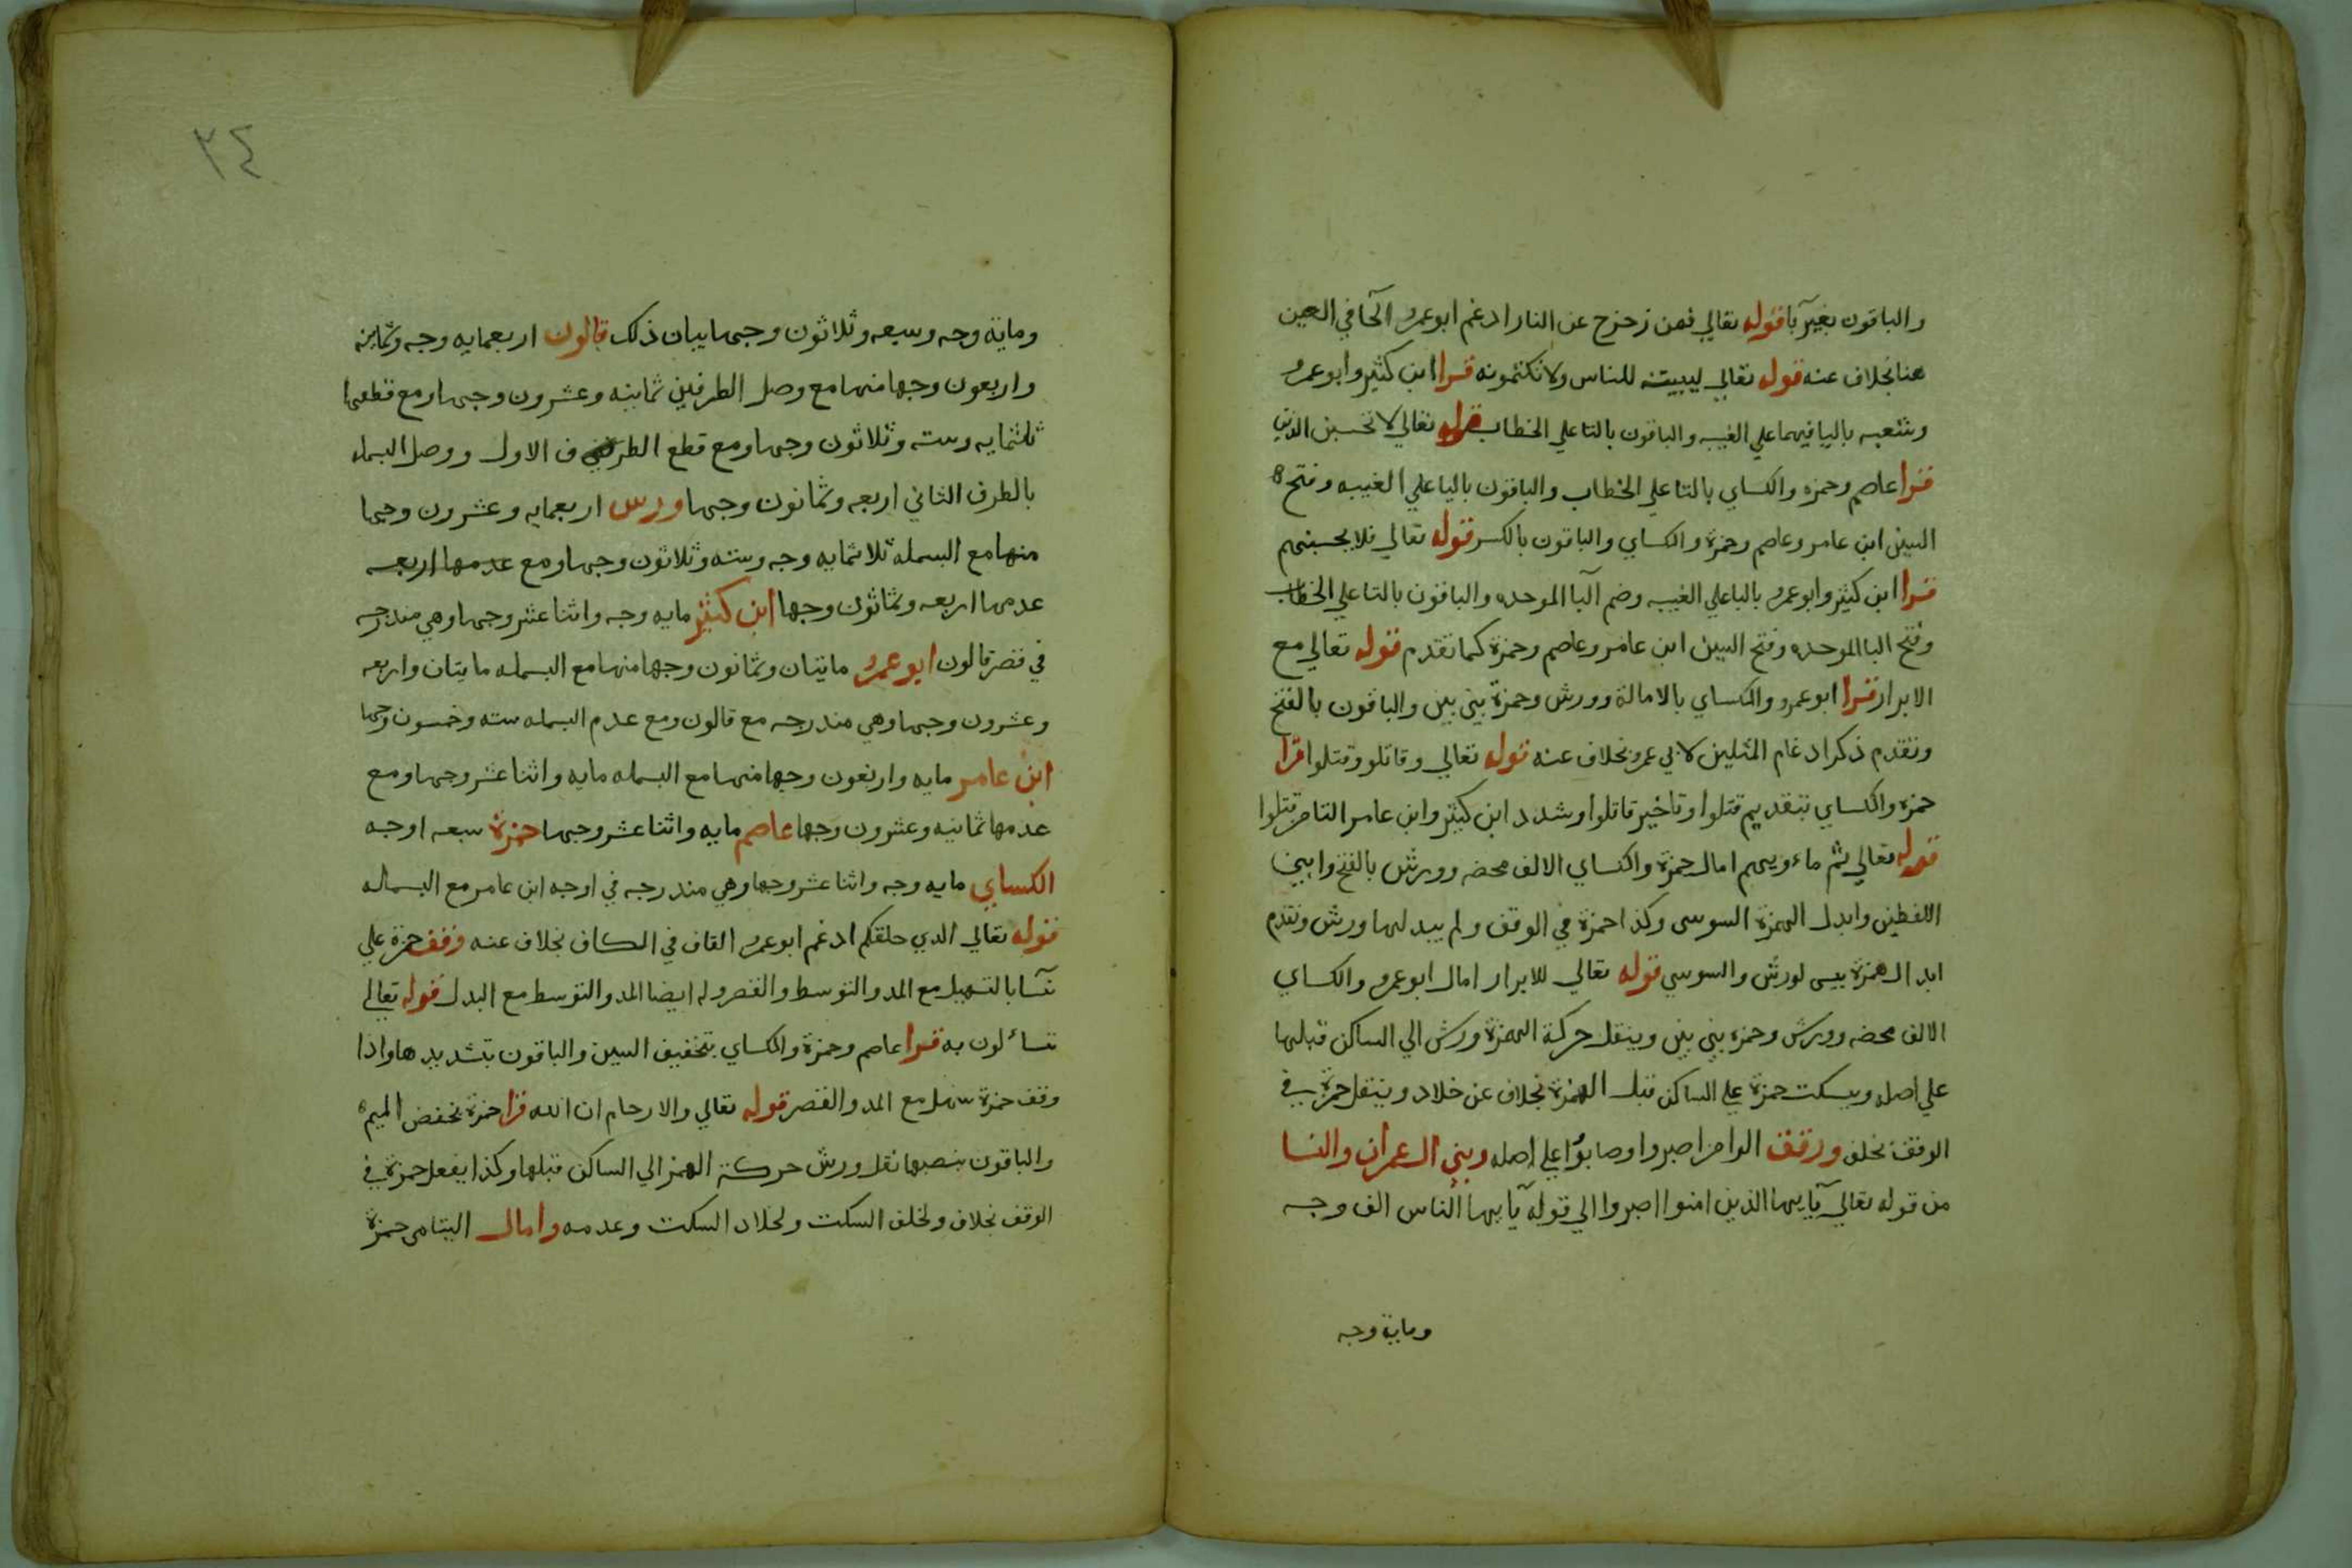 والباقون بغير با قوله تعالي فمن زحزح عن النار ادغم ابو عمرو الحا في العين
هنا بخلاف عنه قوله تعالي ليبيننه للناس ولا تكتمونه قرا ابن كثير وابو عمرو
وشعبه باليا فيهما علي الغيبه والباقون بالتا علي الخطاب قوله تعالي لا تحسبن الذين
قرا عاصم وحمزه والكساي بالتا علي الخطاب والباقون باليا علي الغيبه وفتح
السين ابن عامر وعاصم وحمزة والكساي والباقون بالكسر قوله تعالي فلا يحسبنهم
قرا ابن كثير وابو عمرو باليا علي الغيبه وضم البا الموحده والباقون بالتا علي الخطاب
وفتح البا الموحده وفتح السين ابن عامر وعاصم وحمزة كما تقدم قوله تعالي مع
الابرار قرا ابو عمرو والكساي بالامالة وورش وحمزة بين بين والباقون بالفتح
وتقدم ذكر ادغام المثلين لابي عمرو بخلاف عنه قوله تعالي وقاتلو وقتلوا قرا
حمزه والكساي بتقديم قتلوا وتاخير قاتلوا وشدد ابن كثير وابن عامر التا من قتلوا
قوله تعالي ثم ماءويهم امال حمزة والكساي الالف محضه وورش بالفتح وابين
اللفظين وابدل الهمزة السوسى وكذا حمزة في الوقف ولم يبدلها ورش وتقدم
ابدال همزة بيس لورش والسوسي قوله تعالي للابرار امال ابو عمرو والكساي
الالف محضه وورش وحمزه بين بين وينقل حركة الهمزة ورش الي الساكن قبلها
علي اصله ويسكت حمزة علي الساكن قبل الهمزة بخلاف عن خلاد وينقل حمزة في
الوقف بخلف ورقق الرا من اصبروا وصابروا علي اصله وبين ال عمران والنسا
من قوله تعالي يآيها الذين امنوا اصبروا الي قوله يآيها الناس الف وجه
وماية وجه
٣٤
وماية وجه وسبعه وثلاثون وجها بيان ذلك قالون اربعمايه وجه وثمانيه
واربعون وجها منها مع وصل الطرفين ثمانيه وعشرون وجها ومع قطعهما
ثلثمايه وسته وثلاثون وجها ومع قطع الطرف الاول ووصل البسمله
بالطرف الثاني اربعه وثمانون وجها ورس اربعمايه وعشرون وجها
منها مع البسمله ثلاثمايه وجه وسته وثلاثون وجها ومع عدمها اربعه
عدمها اربعه وثمانون وجها ابن كثير مايه وجه واثنا عشر وجها وهي مندرجه
في قصر قالون ابو عمرو مايتان وثمانون وجها منها مع البسمله مايتان واربعه
وعشرون وجها وهي مندرجه مع قالون ومع عدم البسمله سته وخمسون وجها
ابن عامر مايه واربعون وجها منها مع البسمله مايه واثنا عشر وجها ومع
عدمها ثمانيه وعشرون وجها عاصم مايه واثنا عشر وجها حمزة سبعه اوجه
الكساي مايه وجه واثنا عشر وجها وهي مندرجه في اوجه ابن عامر مع البسمله
قوله تعالي الدي خلقكم ادغم ابو عمرو القاف في الكاف بخلاف عنه وقف حمزة علي
نسآ بالتسهيل مع المد والتوسط والقصر وله ايضا المد والتوسط مع البدل قوله تعالي
تساءلون به قرا عاصم وحمزة والكساي بتخفيف السين والباقون بتشديدها واذا
وقف حمزة سهل مع المد والقصر قوله تعالي والارحام ان الله قرا حمزة بخفض الميم
والباقون بنصبها نقل ورش حركة الهمز الي الساكن قبلها وكذا يفعل حمزة في
الوقف بخلاف ولخلف السكت ولخلاد السكت وعدمه وامال اليتامى حمزة